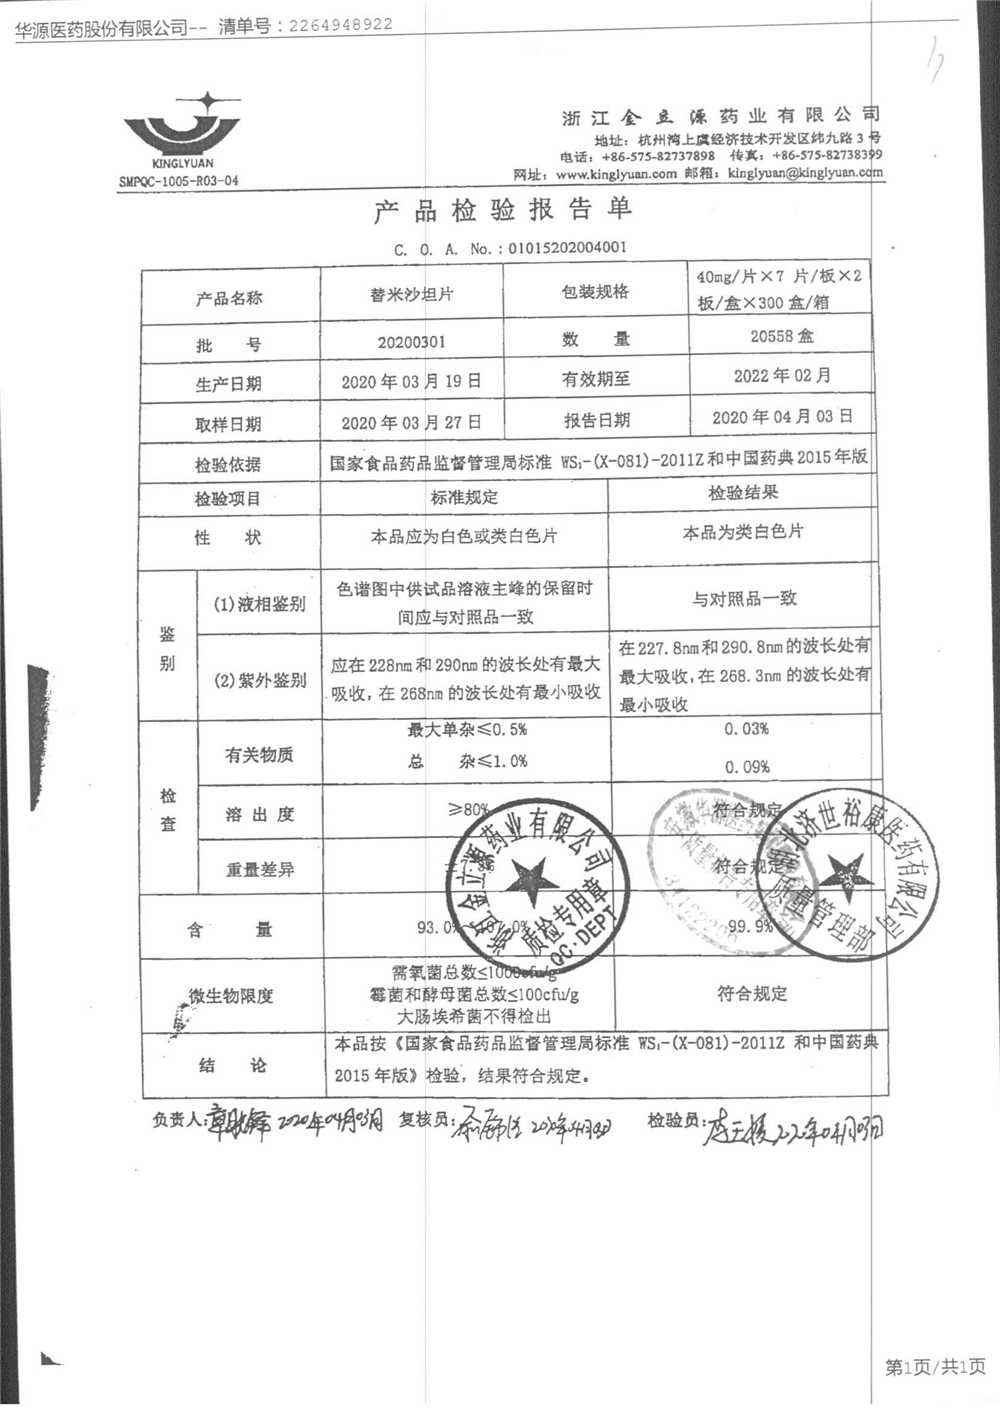 华源医药股份有限公司-- 清单号：2264948922
KINGLYUAN
SMPQC-1005-R03-04
浙江金立源药业有限公司
地址：杭州湾上虞经济技术开发区纬九路 3 号
电话：+86-575-82737898 传真：+86-575-82738399
网址：www.kinglyuan.com 邮箱：kinglyuan@kinglyuan.com
产品检验报告单
C. O. A. No.：01015202004001
产品名称 替米沙坦片 包装规格 40mg/片×7 片/板×2
板/盒×300 盒/箱
批 号 20200301 数 量 20558 盒
生产日期 2020 年 03 月 19 日 有效期至 2022 年 02 月
取样日期 2020 年 03 月 27 日 报告日期 2020 年 04 月 03 日
检验依据 国家食品药品监督管理局标准 WS₁-(X-081)-2011Z 和中国药典 2015 年版
检验项目 标准规定 检验结果
性 状 本品应为白色或类白色片 本品为类白色片
鉴别
(1)液相鉴别 色谱图中供试品溶液主峰的保留时
间应与对照品一致 与对照品一致
(2)紫外鉴别 应在 228nm 和 290nm 的波长处有最大
吸收，在 268nm 的波长处有最小吸收
在 227.8nm 和 290.8nm 的波长处有
最大吸收，在 268.3nm 的波长处有
最小吸收
检查
有关物质 最大单杂≤0.5% 0.03%
总 杂≤1.0% 0.09%
溶 出 度 ≥80% 符合规定
重量差异 符合规定
含 量 93.0% 99.9%
微生物限度 需氧菌总数≤1000cfu/g
霉菌和酵母菌总数≤100cfu/g
大肠埃希菌不得检出 符合规定
结 论 本品按《国家食品药品监督管理局标准 WS₁-(X-081)-2011Z 和中国药典
2015 年版》检验，结果符合规定。
浙江金立源药业有限公司
质检专用章
QC·DEPT
湖北济世裕康医药有限公司
质量管理部
负责人： 2020年04月03日 复核员： 检验员：
第1页/共1页